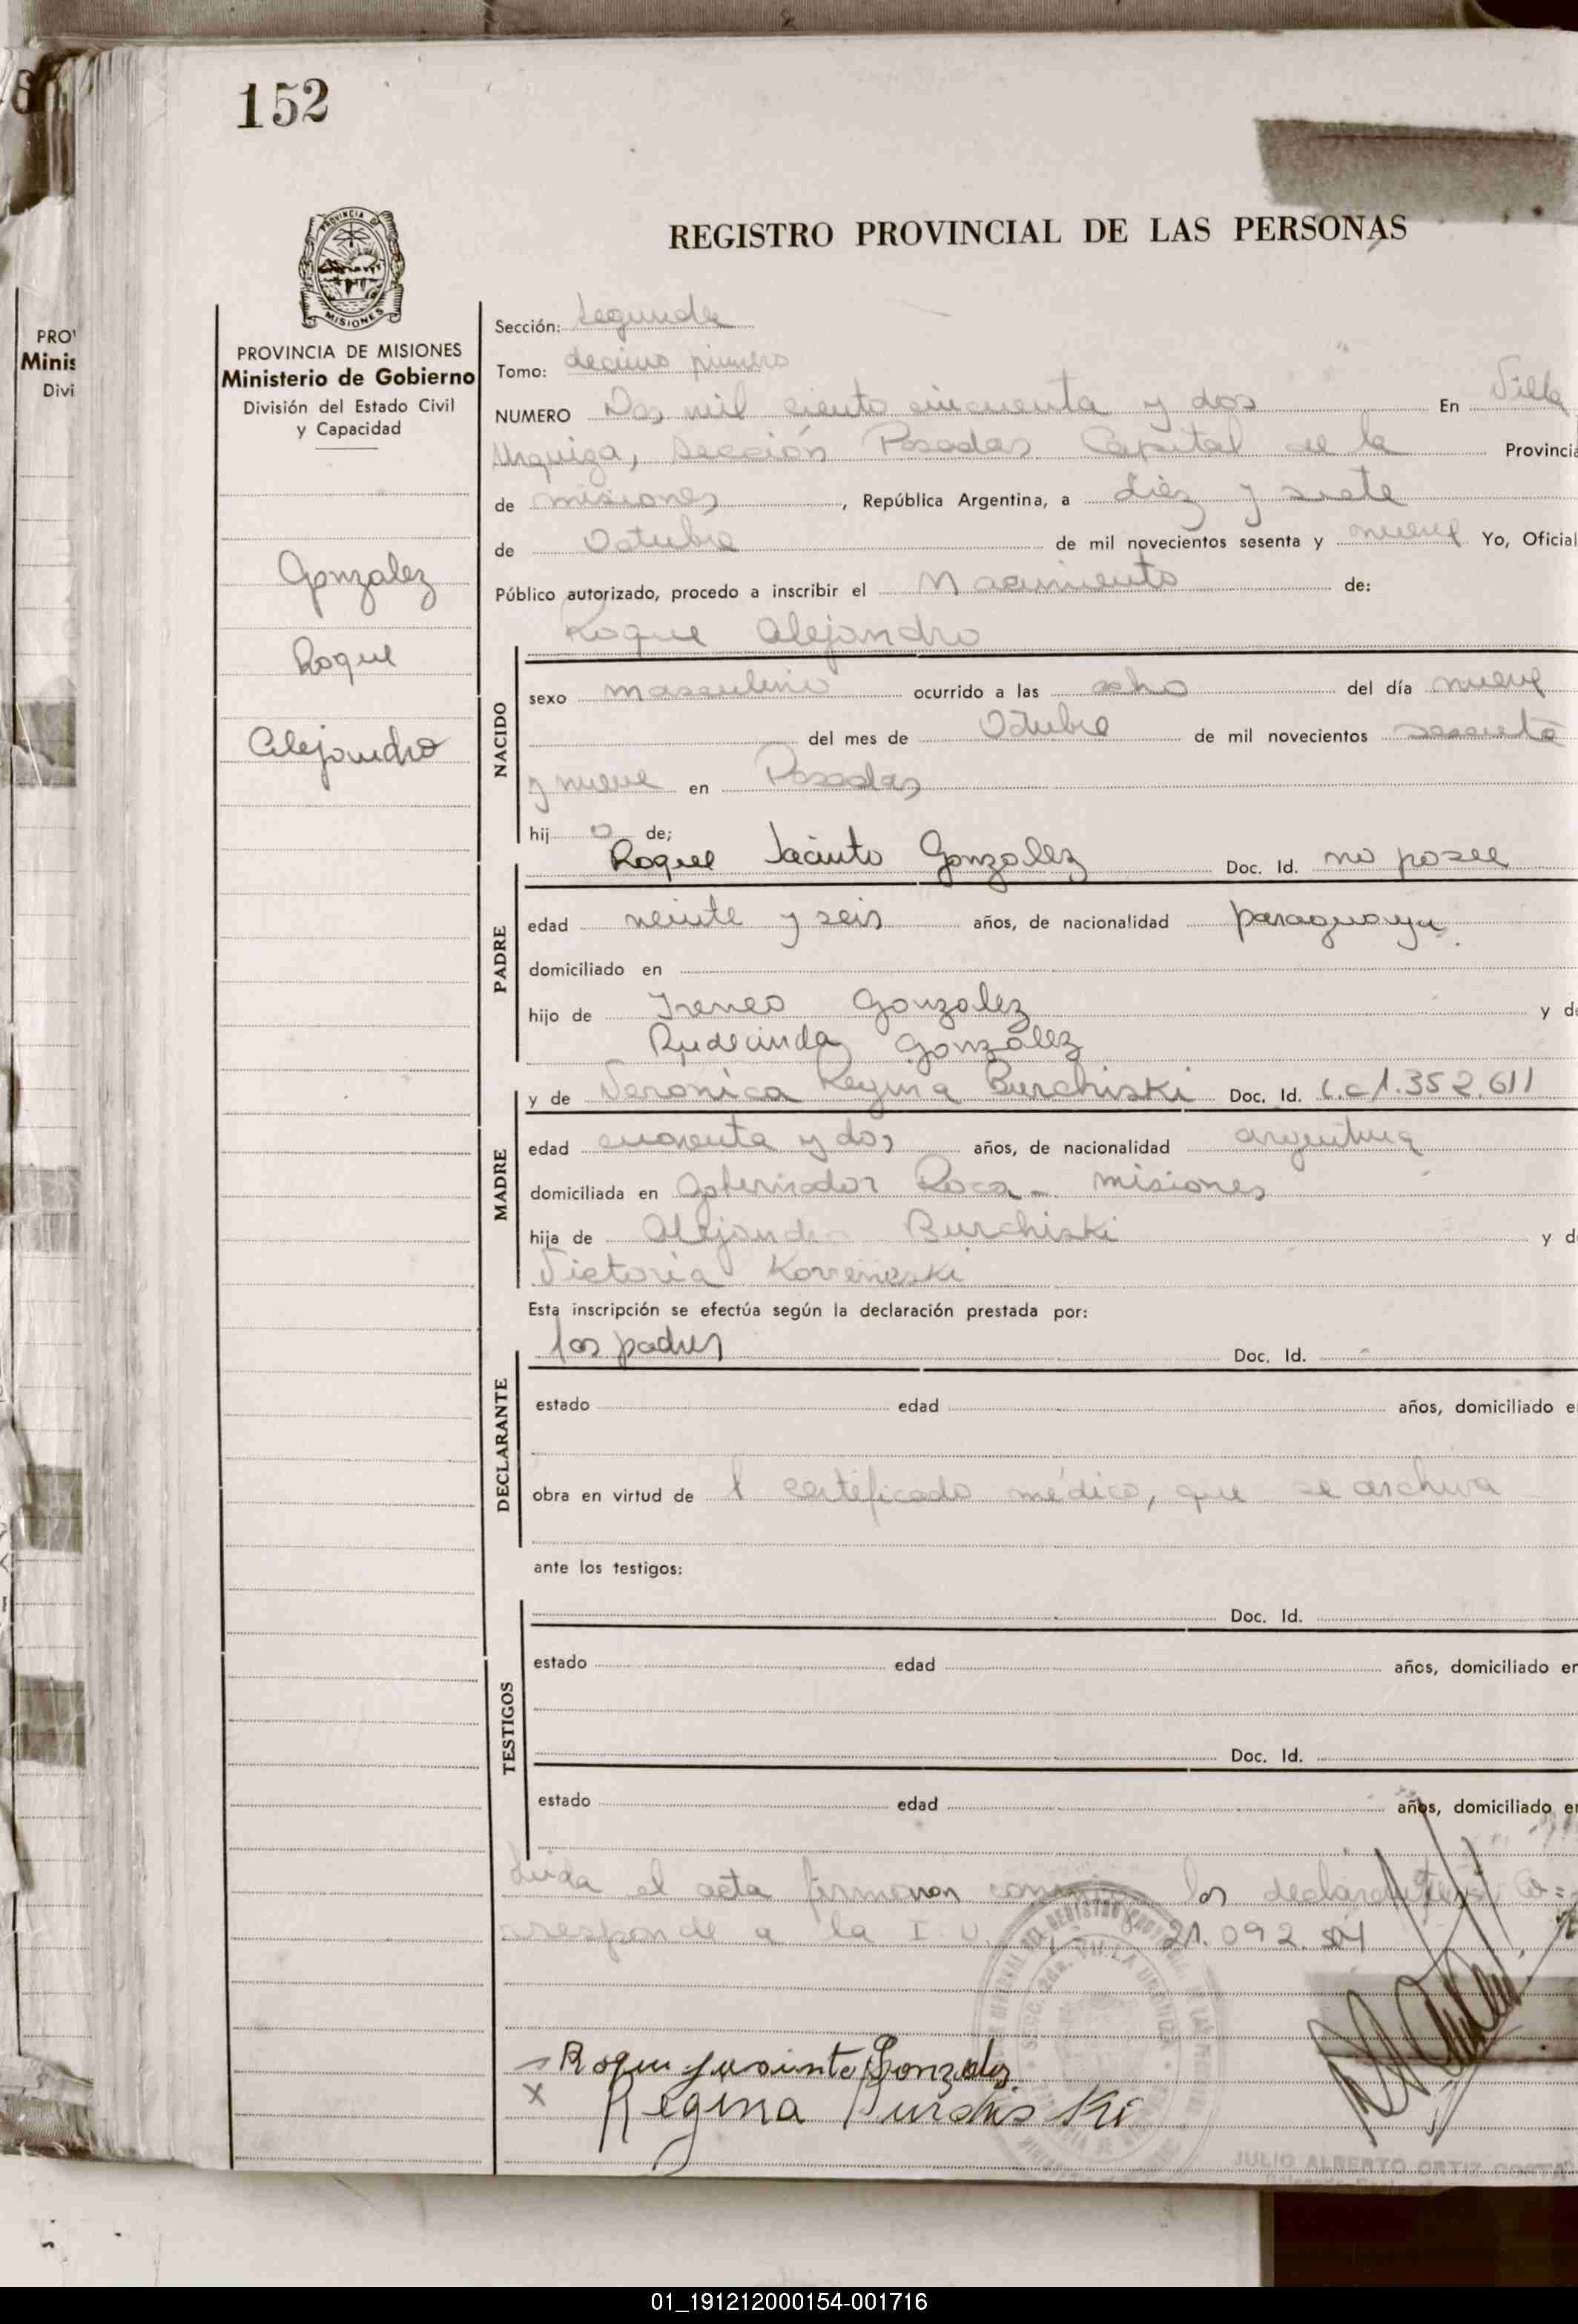 152
REGISTRO PROVINCIAL DE LAS PERSONAS
PROVINCIA DE
MISIONES
PROVINCIA DE MISIONES
Ministerio de Gobierno
División del Estado Civil
y Capacidad
Gonzalez
Roque
Alejandro
PRO
Minis
Divi
Sección: Segunda
Tomo: decimo primero
NUMERO Dos mil ciento cincuenta y dos En Villa
Urquiza, Sección Posadas Capital de la Provincia
de Misiones, República Argentina, a diez y siete
de Octubre de mil novecientos sesenta y nueve Yo, Oficial
Público autorizado, procedo a inscribir el Nacimiento de:
Roque Alejandro
NACIDO
sexo masculino ocurrido a las ocho del día nueve
del mes de Octubre de mil novecientos sesenta
y nueve en Posadas
hij o de;
Roque Jacinto Gonzalez Doc. Id. no posee
PADRE
edad veinte y seis años, de nacionalidad paraguaya
domiciliado en
hijo de Ireneo Gonzalez y de
Rudecinda González
y de Verónica Regina Burchiski Doc. Id. L.C 1.352.611
MADRE
edad cuarenta y dos años, de nacionalidad argentina
domiciliada en Gobernador Roca - Misiones
hija de Alejandro Burchiski y d
Victoria
Esta inscripción se efectúa según la declaración prestada por:
los padres Doc. Id.
DECLARANTE
estado edad años, domiciliado e
obra en virtud de 1 certificado médico, que se archiva
ante los testigos:
Doc. Id.
TESTIGOS
estado edad años, domiciliado en
Doc. Id.
estado edad años, domiciliado en
Leída el acta firmaron conmigo los declarantes Co=
rresponde a la I. U. 21.092.
Roque Jasinto Gonzalez
x Regina Burchis Ki
JULIO ALBERTO ORTIZ COSTA
01_191212000154-001716